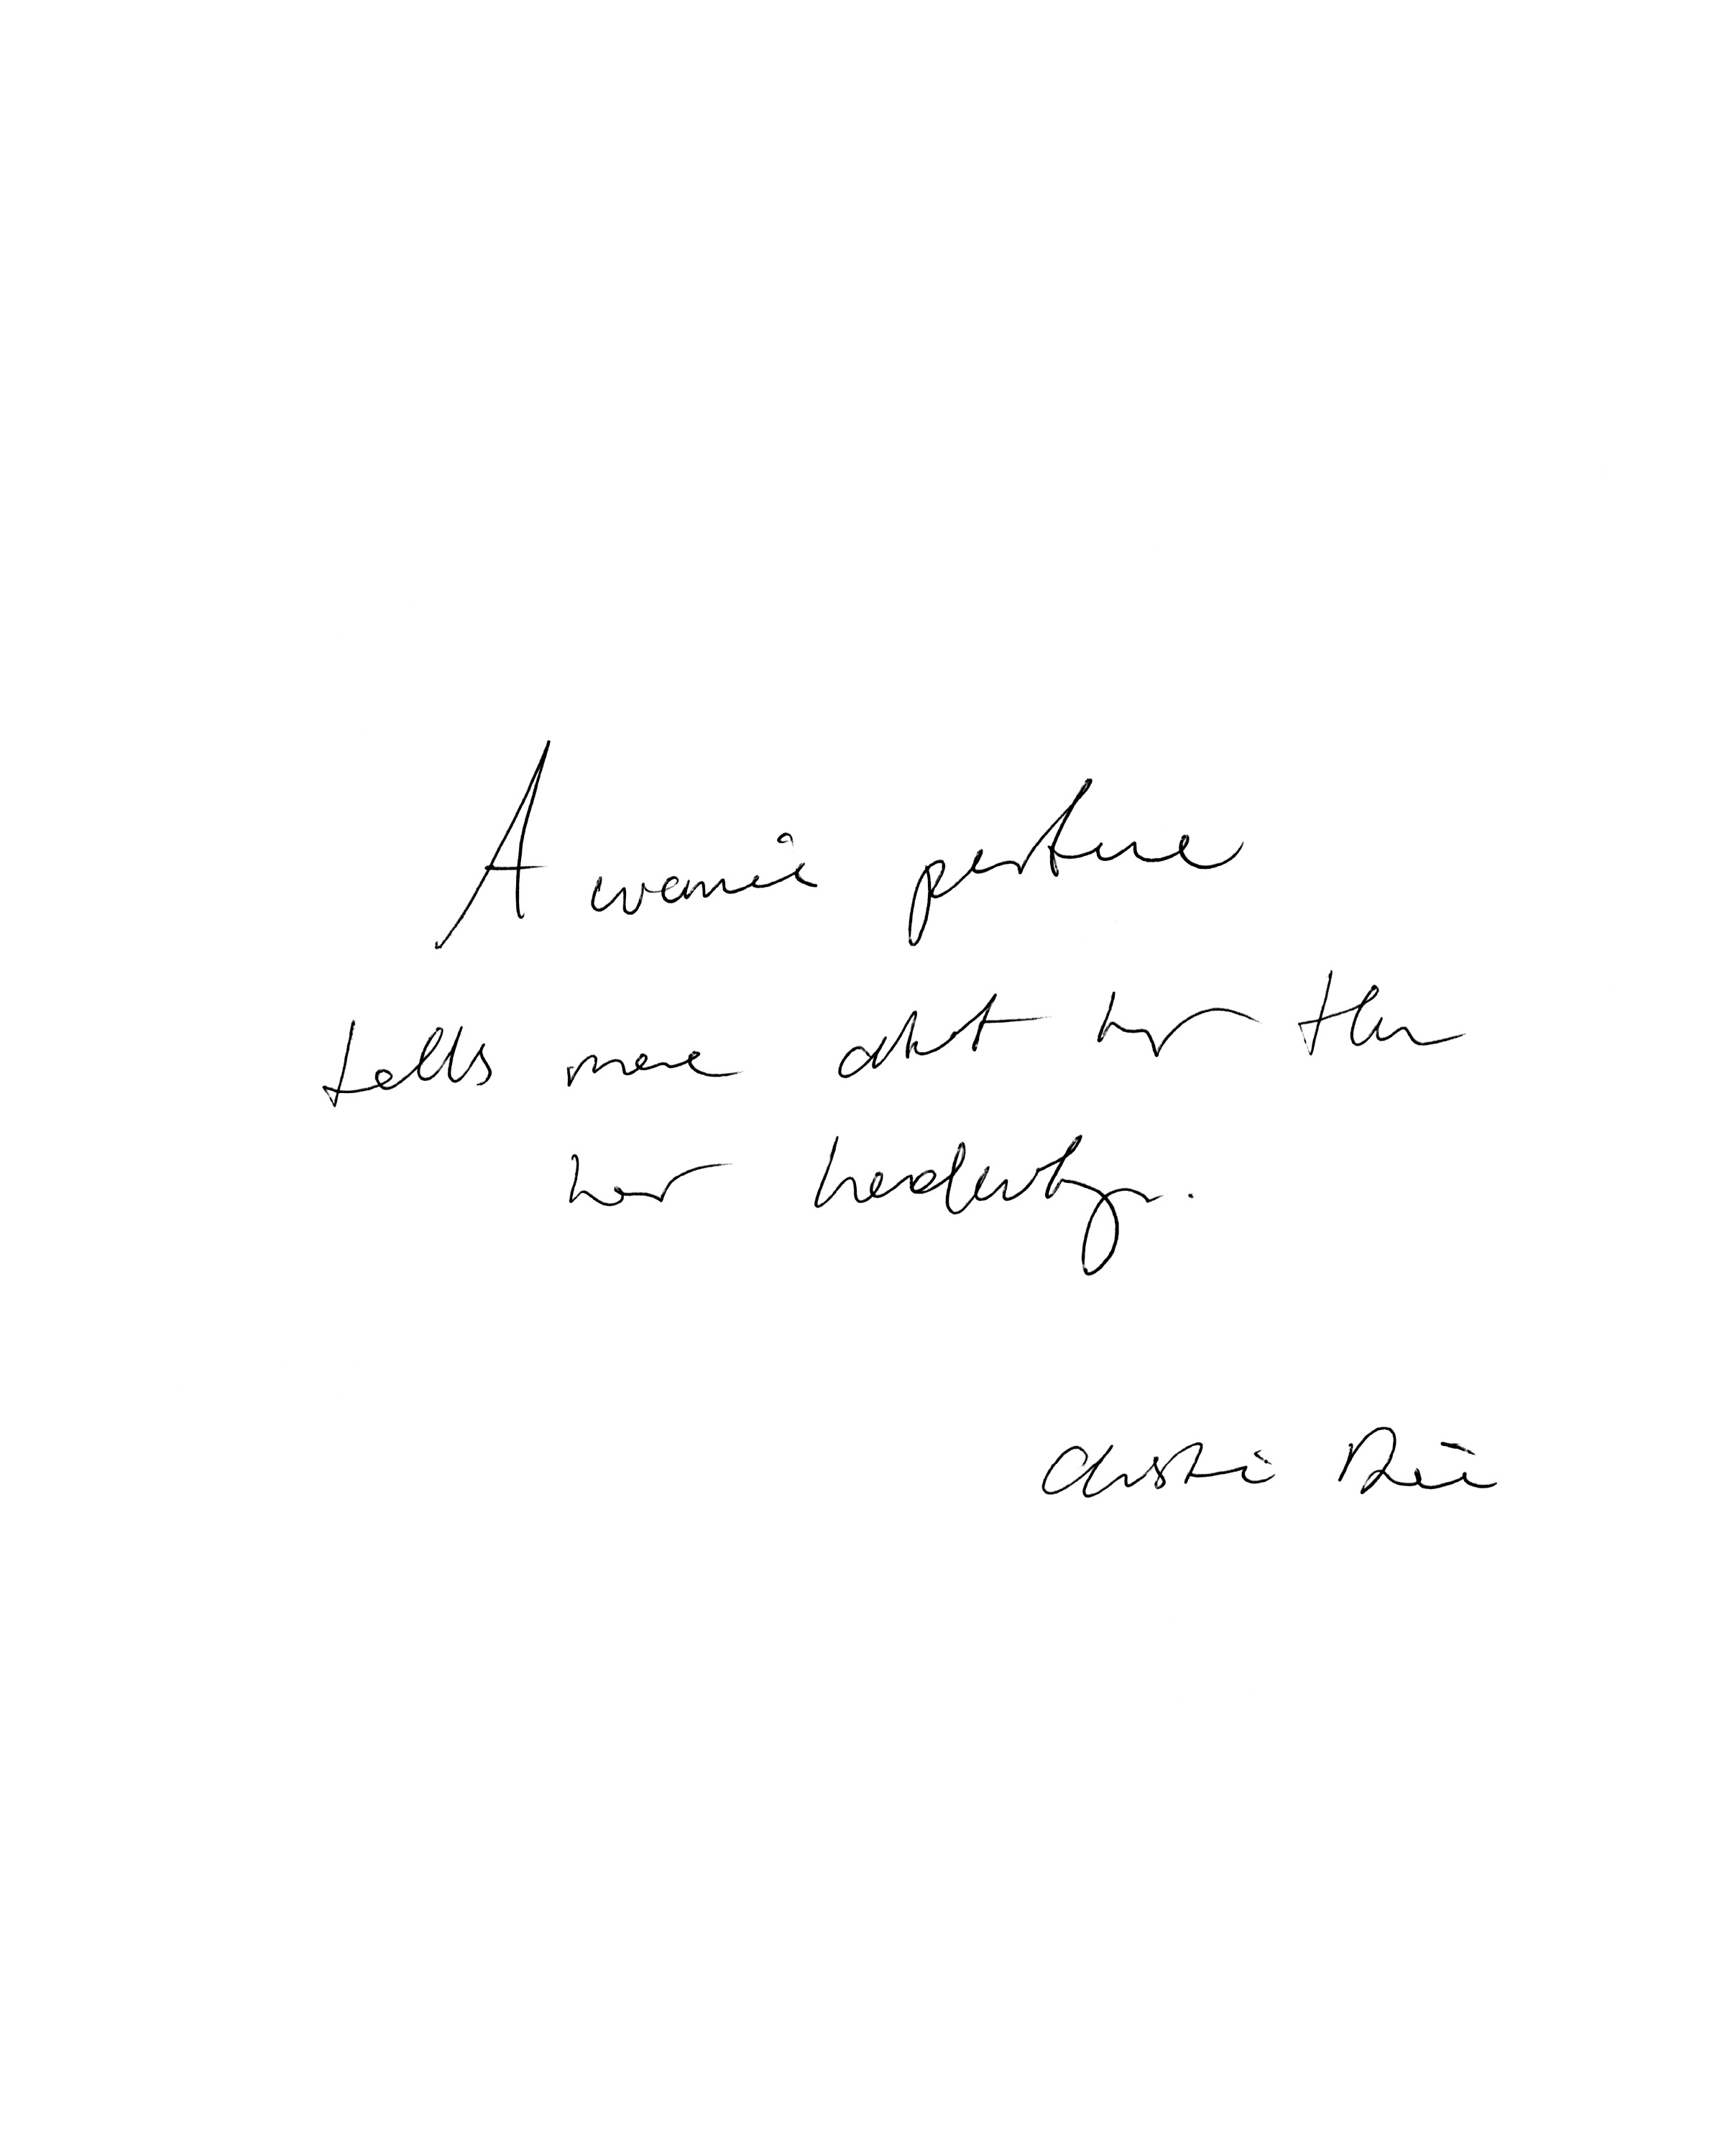 A woman's perfume
tells more about her than
her handwriting.
Christian Dior